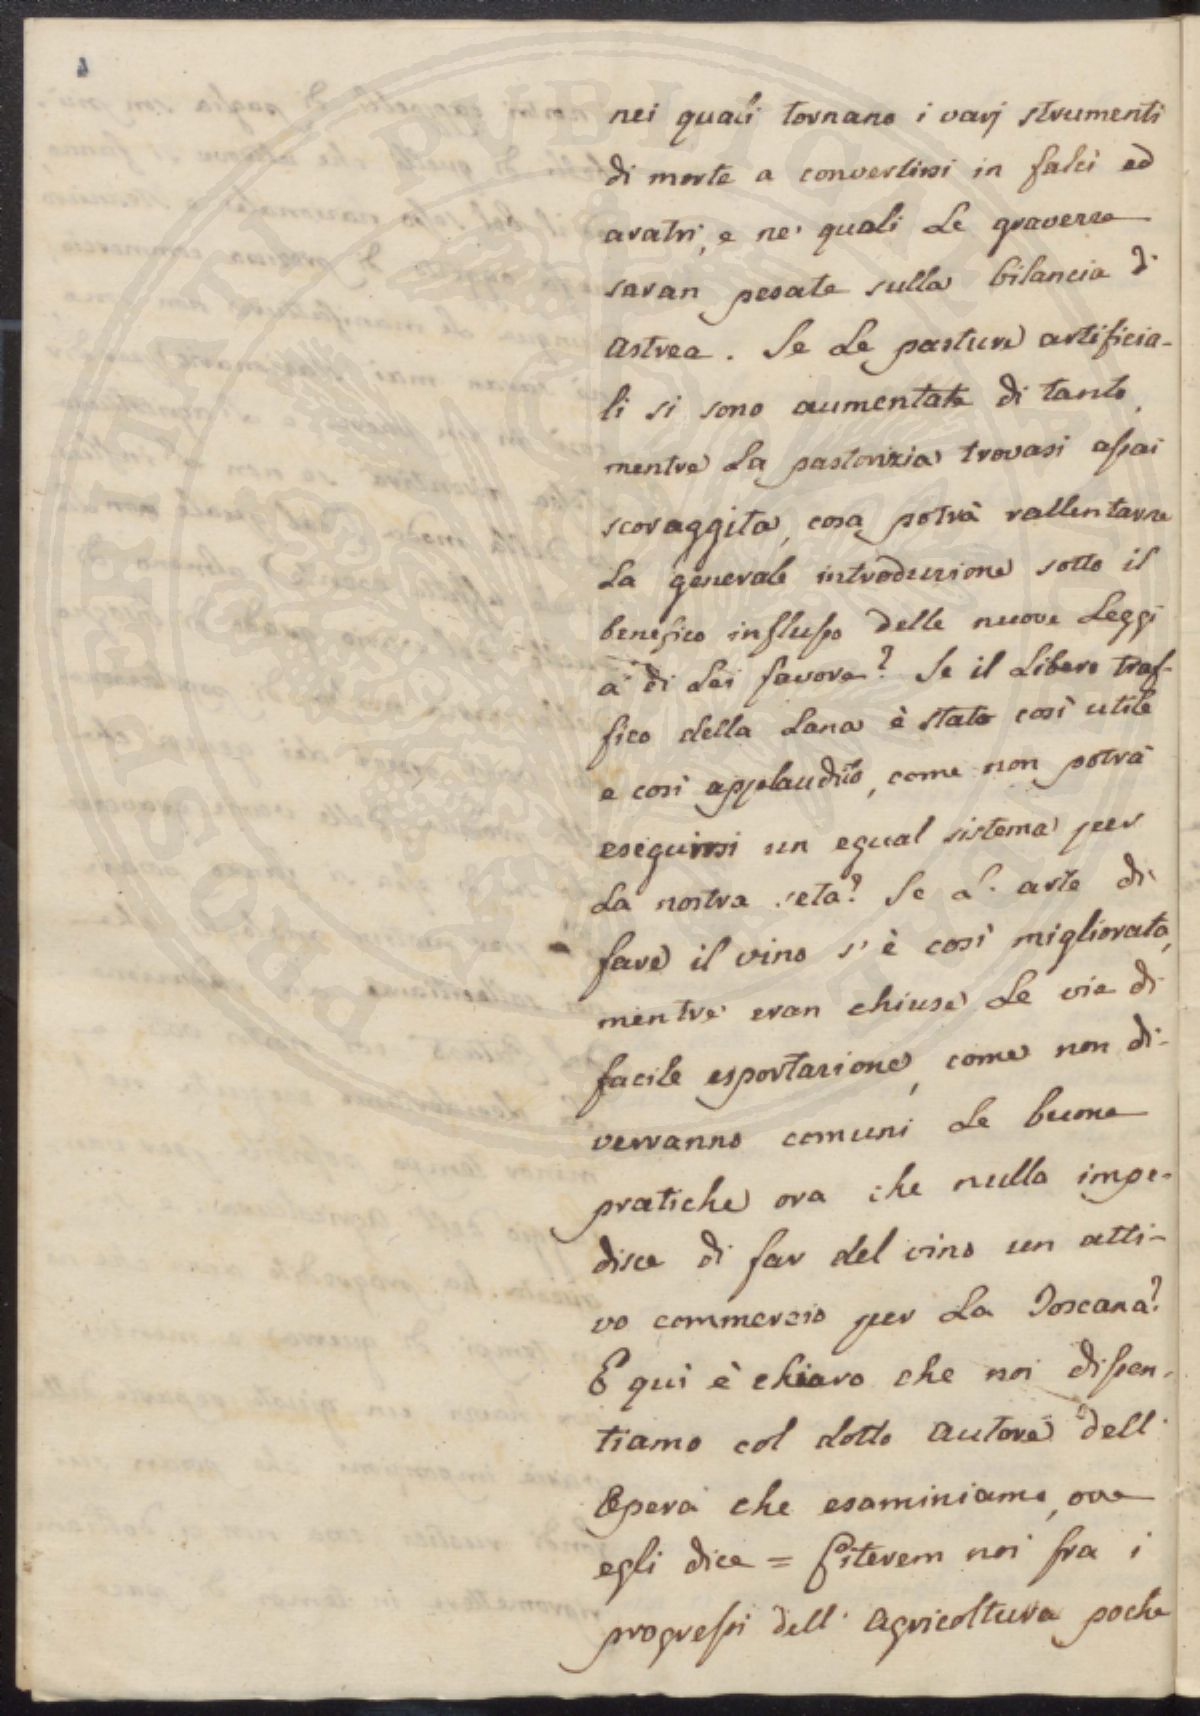 4
nei quali tornano i varj strumenti
di morte a convertirsi in falci ed
aratri, e ne' quali Le gravezze
saran pesate sulla bilancia di
Astrea. Se Le pasture artificia-
li si sono aumentate di tanto,
mentre La pastorizia trovasi assai
scoraggita, cosa potrà rallentarne
La generale introduzione sotto il
benefico influsso delle nuove Leggi
a di Lei favore? Se il Libero traf-
fico della Lana è stato così utile
e così applaudito, come non potrà
eseguirsi un egual sistema per
La nostra seta? Se L'arte di
fare il vino s'è così migliorata,
mentre eran chiuse Le vie di
facile esportazione, come non di-
verranno comuni Le buone
pratiche ora che nulla impe-
disce di far del vino un atti-
vo commercio per La Toscana?
E quì è chiaro che noi dissen-
tiamo col dotto Autore dell'
Opera che esaminiamo, ove
egli dice = Citerem noi fra i
progressi dell'Agricoltura poche